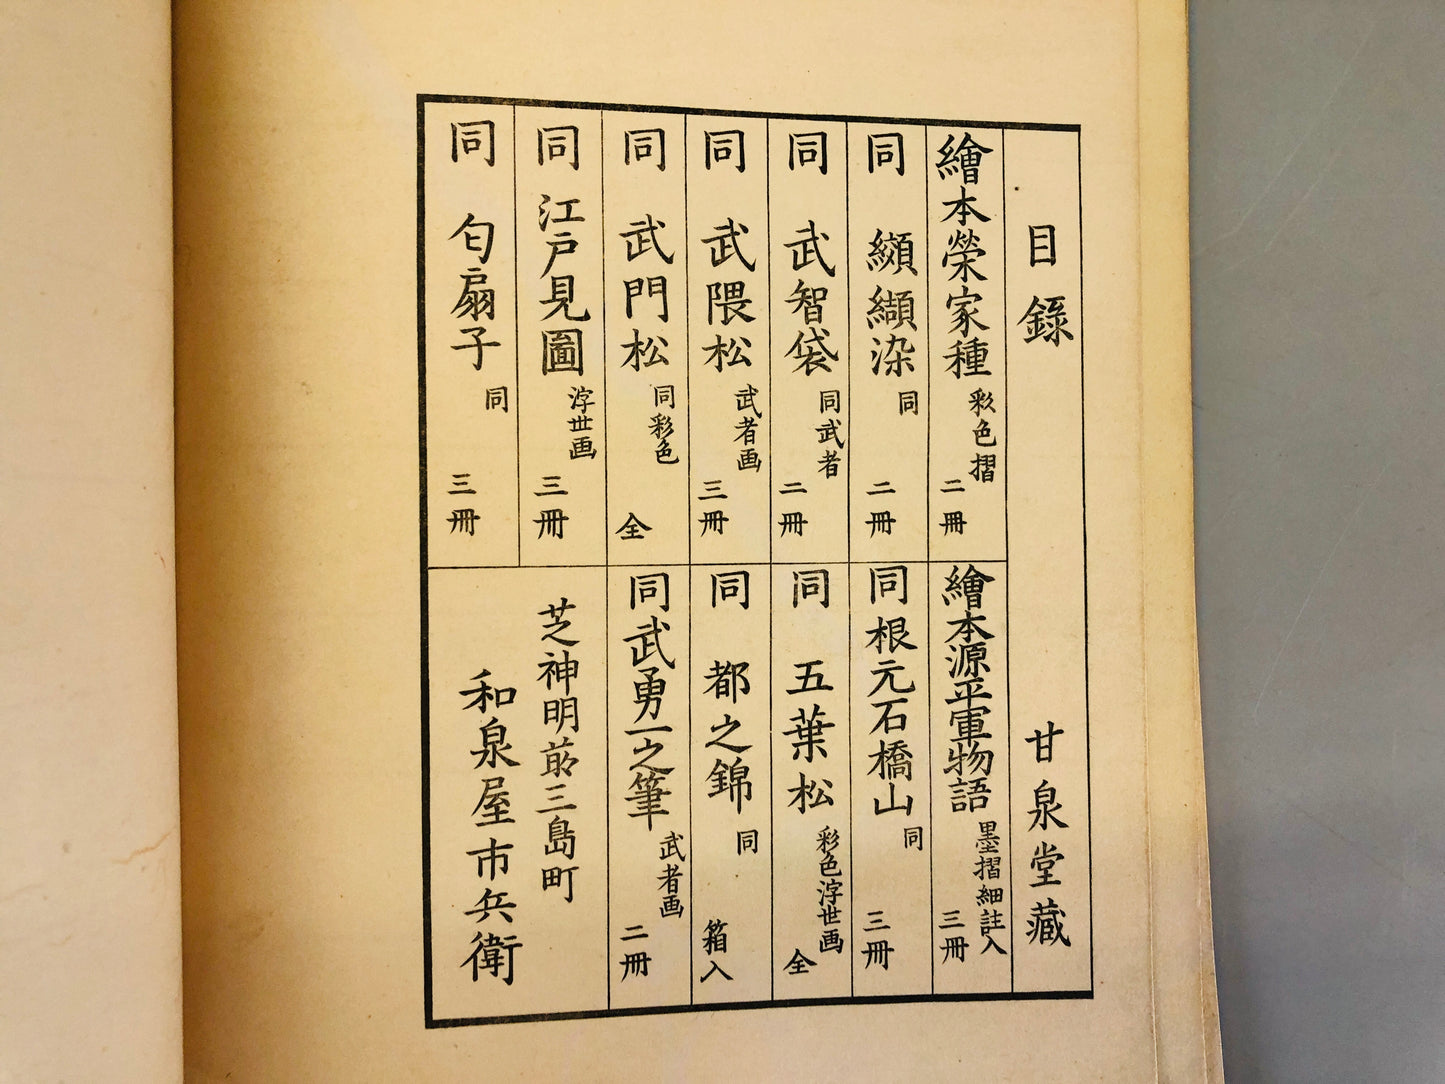 目錄 甘泉堂藏
繪本榮家種 彩色摺 二冊
同 纈纈染 同 二冊
同 武智袋 同武者 二冊
同 武隈松 武者画 三冊
同 武門松 同彩色 全
同 江戸見圖 浮世画 三冊
同 匂扇子 同 三冊
繪本源平軍物語 墨摺細註入 三冊
同根元石橋山 同 三冊
同 五葉松 彩色浮世画 全
同 都之錦 同 箱入
同武勇一之筆 武者画 二冊
芝神明前三島町
和泉屋市兵衛